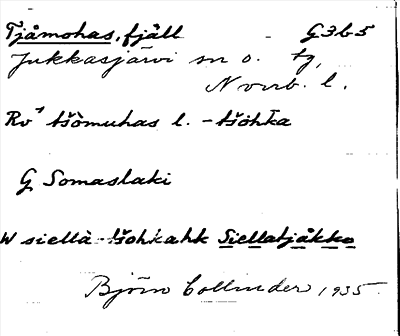 Tjåmohas, fjäll G3b5
Jukkasjärvi sn o. tg,
Norrb. l.
Rv⁷ tšòmuhas l. -tšohka
G Somaslaki
W siellà-tšohkahk Siellatjåkko
Björn Collinder 1935.